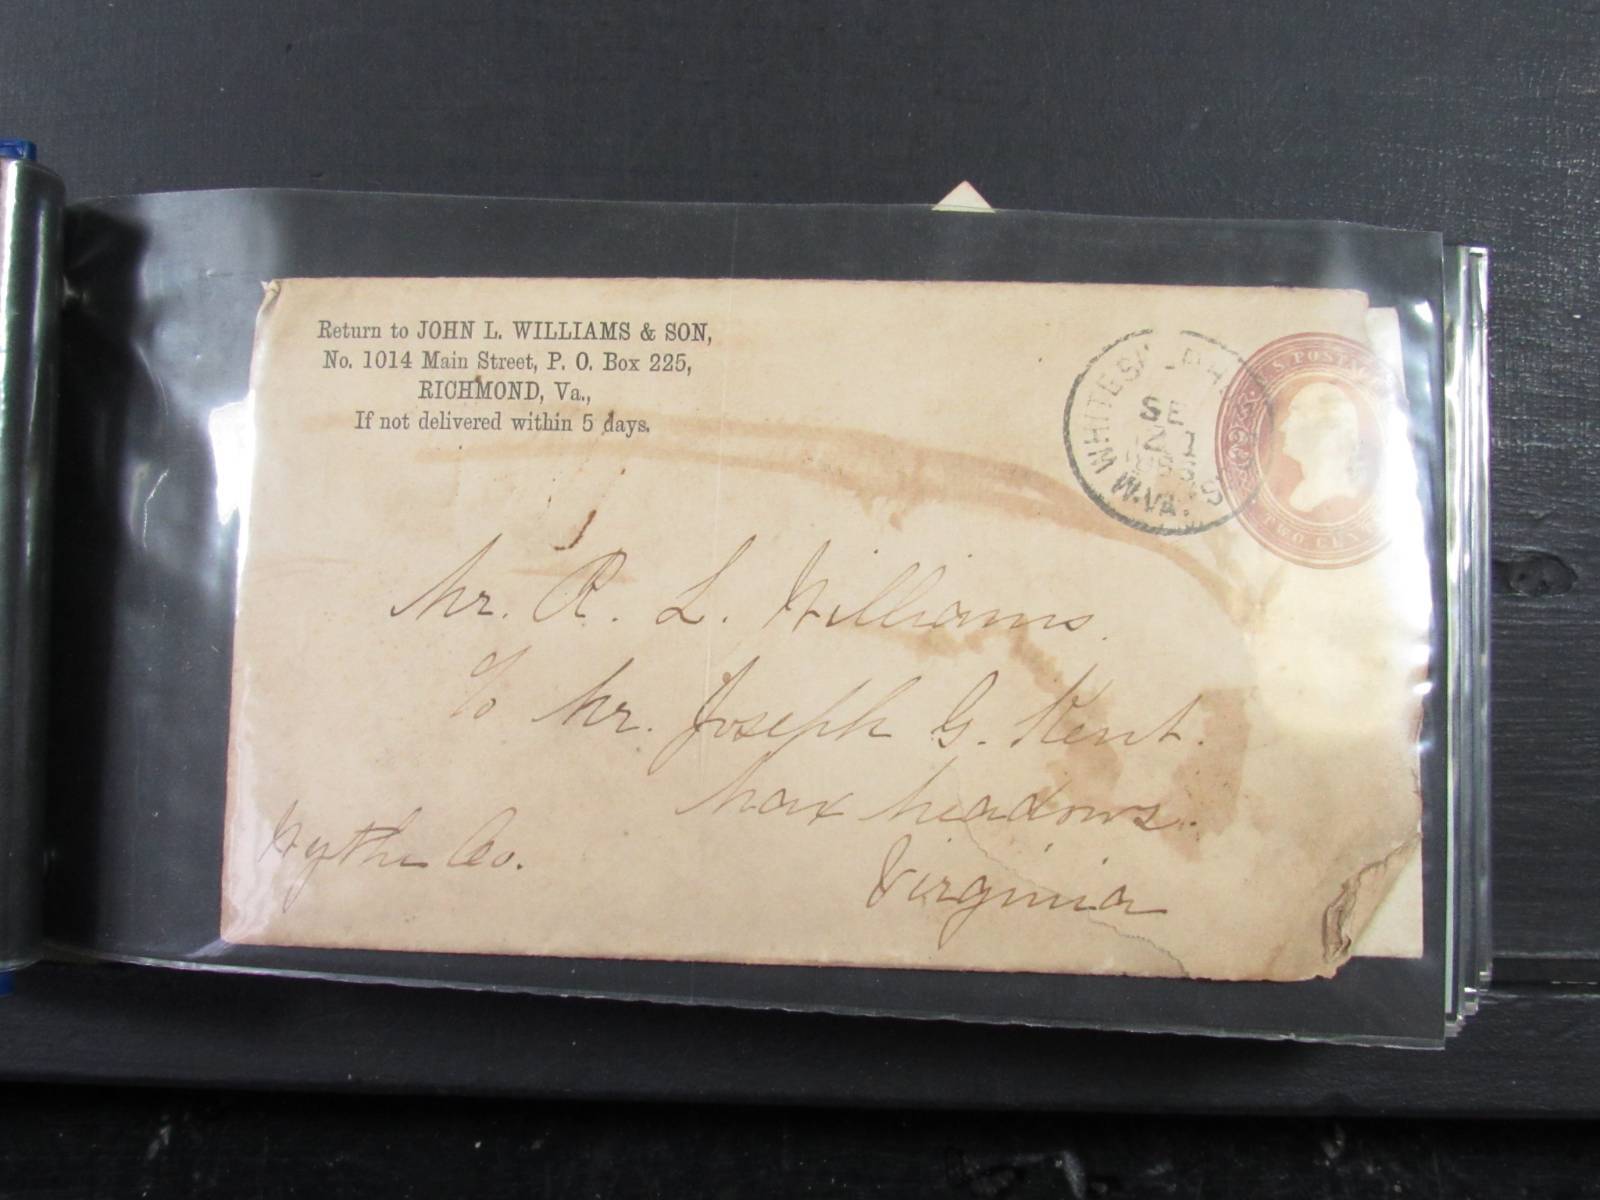 Return to JOHN L. WILLIAMS & SON,
No. 1014 Main Street, P. O. Box 225,
RICHMOND, Va.,
If not delivered within 5 days.
WHITE SULPHUR
SE
W.VA.
S POSTAGE
TWO CENTS
Mr. R. L. Williams.
c/o Mr. Joseph G. Kent.
Max Meadows.
Wythe Co.
Virginia